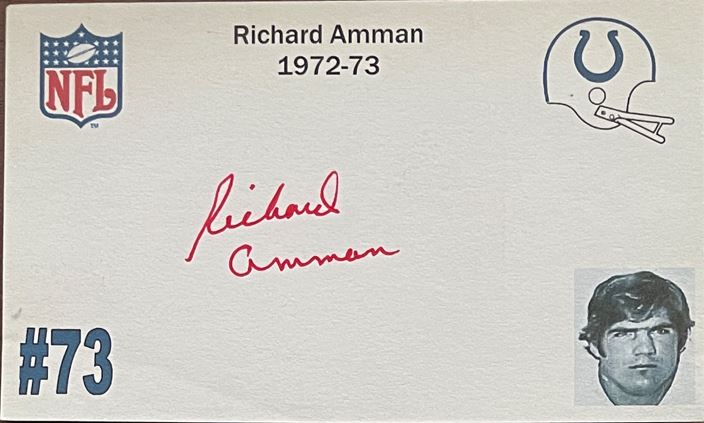 Richard Amman
1972-73
NFL
TM
Richard
Amman
#73